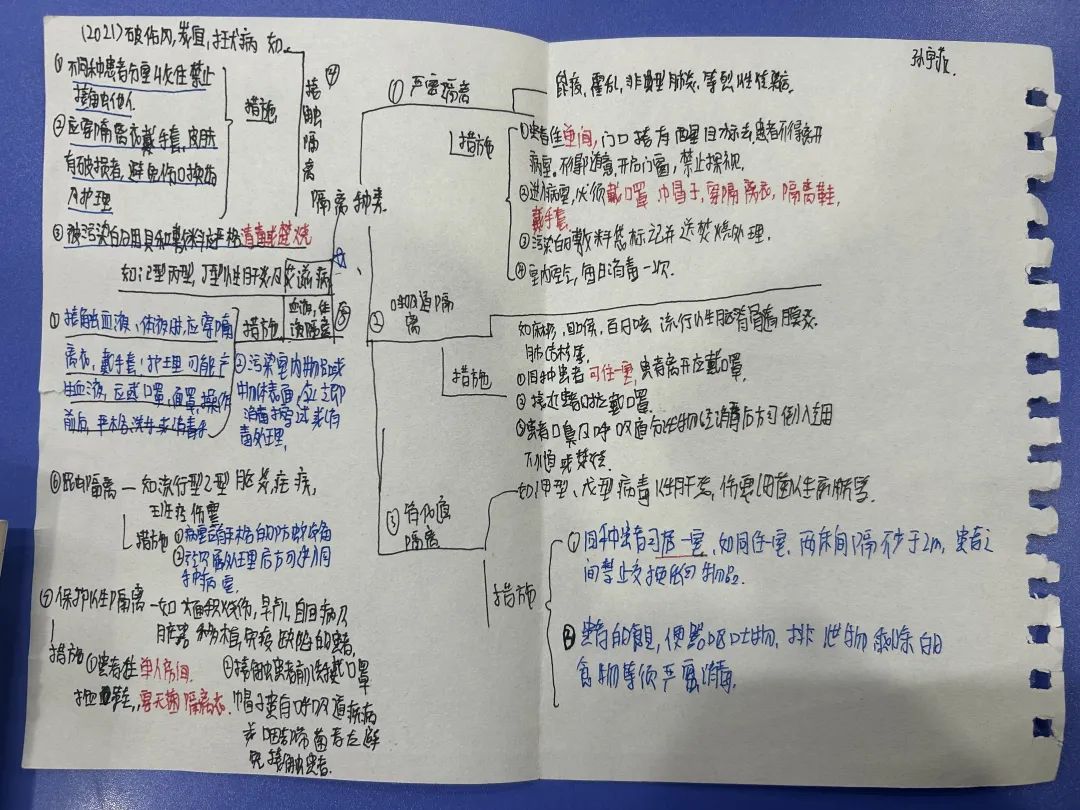 (2021)破伤风,气疽,狂犬病 如
① 不同种患者分室收住禁止
接触他人
②应穿隔离衣戴手套,皮肤
有破损者,避免伤口换药
及护理
③被污染的用具和敷料应严格消毒或焚烧
措施
④
接触隔离
隔离种类
如乙型丙型,丁型性肝炎及艾滋病
血液,体液隔离
⑤
措施
① 接触血液、体液时,应穿隔
离衣,戴手套;护理可能产
生血液,应戴口罩,面罩,操作
前后,严格洗手或消毒手
②污染室内物品或
物体表面,应立即
消毒擦拭或消
毒处理,
⑥昆虫隔离—如流行型乙型脑炎疟疾,
斑疹伤寒
措施
①病室有严格的防蚊设备
后方可进入同
种病室
⑦保护性隔离—如大面积烧伤,早产儿,白血病及
脏器移植,免疫缺陷的患者,
措施
①患者住单人房间,
穿无菌隔离衣.
②接触患者前洗手口罩
帽子患有呼吸道疾病
或咽部带菌者应避
免接触患者.
孙宇
①严密隔离
鼠疫,霍乱,非典型肺炎,等烈性传染病.
措施
①患者住单间,门口挂有醒目标志患者不得离开
病室。不得随意,开启门窗,禁止探视.
②进入病室,必须戴口罩 巾帽子,穿隔离衣,隔离鞋,
戴手套.
③污染的敷料应标记并送焚烧处理.
④室内空气,每日消毒一次.
②呼吸道隔
离
如麻疹,白喉,百日咳 流行性脑脊髓膜炎
肺结核等.
措施
①同种患者可住一室,患者离开应戴口罩.
②接近患者时应戴口罩.
③患者口鼻及呼吸道分泌物经消毒后方可倒入
下水道或焚烧.
③消化道
隔离
—如甲型、戊型病毒性肝炎,伤寒细菌性痢疾等.
措施
①同种患者可居一室,如同住一室,两床间隔不少于2m,患者之
间禁止交换任何物品.
②患者的食具,便器呕吐物,排泄物剩余的
食物等须严密消毒.